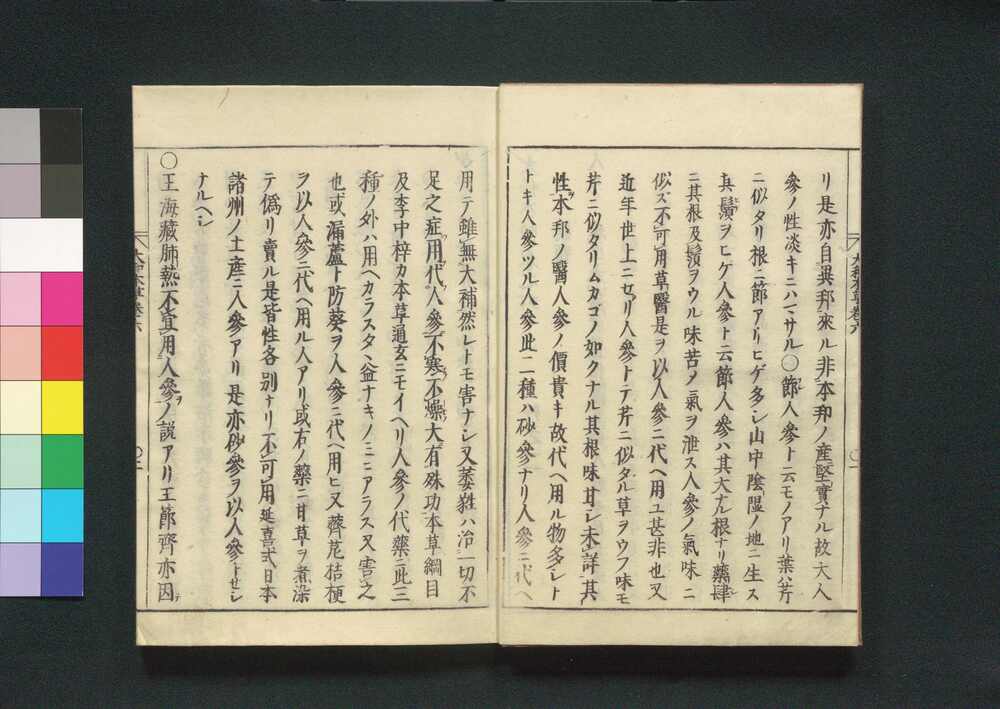 リ是亦自異邦來ル非本邦ノ産堅實ナル故大人
參ノ性淡キニハマサル〇節人參ト云モノアリ葉ハ芹
ニ似タリ根ニ節アリヒゲ多シ山中陰濕ノ地ニ生ス
其鬚ヲヒゲ人參ト云節人參ハ其大ナル根ナリ藥肆
ニ其根及鬚ヲウル味苦ノ氣ヲ泄ス人參ノ氣味ニ
似ズ不可用草醫是ヲ以人參ニ代ヘ用ユ甚非也又
近年世上ニセリ人參トテ芹ニ似タル草ヲウフ味モ
芹ニ似タリムカゴノ如クナル其根味甘シ未詳其
性本邦ノ醫人參ノ價貴キ故代ヘ用ル物多シト
トキ人參ツル人參此二種ハ砂參ナリ人參ニ代ヘ
用テ雖無大補然レトモ害ナシ又萎蕤ハ治一切不
足之症用代人參不寒不燥大有殊功本草綱目
及李中梓カ本草通玄ニモイヘリ人參ノ代藥ニ此三
種ノ外ハ用ヘカラスタヽ益ナキノミニアラス又害之
也或漏蘆ト防葵ヲ人參ニ代ヘ用ヒ又薺苨桔梗
ヲ以人參ニ代ヘ用ル人アリ或右ノ藥ニ甘草ヲ煮染
テ僞リ賣ル是皆性各別ナリ不可用延喜式日本
諸州ノ土産ニ人參アリ是亦砂參ヲ以人參トセシ
ナルヘシ
〇王海藏肺熱不宜用人參ヲノ説アリ王節齊亦因テ